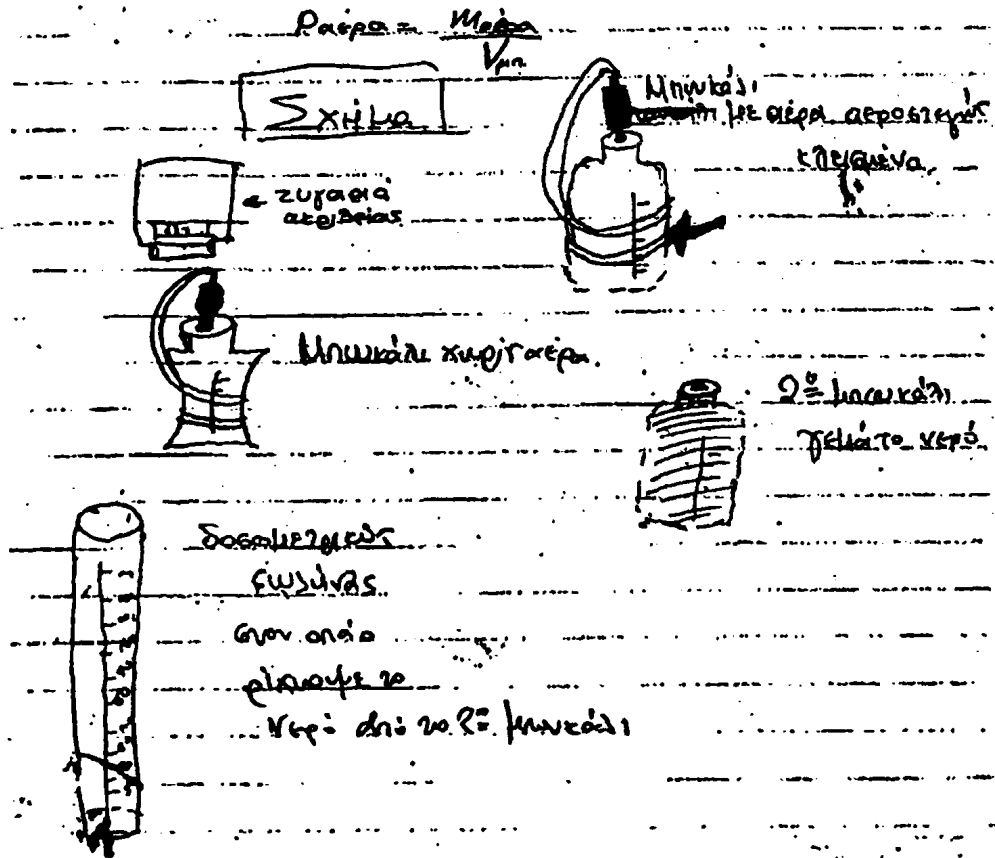 ραέρα = mαέρα
Vμπ.
Σχήμα
Μπουκάλι
με αέρα αεροστεγώς
κλεισμένο
ζυγαριά
ακριβείας
Μπουκάλι χωρίς αέρα.
2º μπουκάλι
γεμάτο νερό
δοσομετρικός
σωλήνας
στον οποίο
ρίχνουμε το
νερό από το 2º μπουκάλι